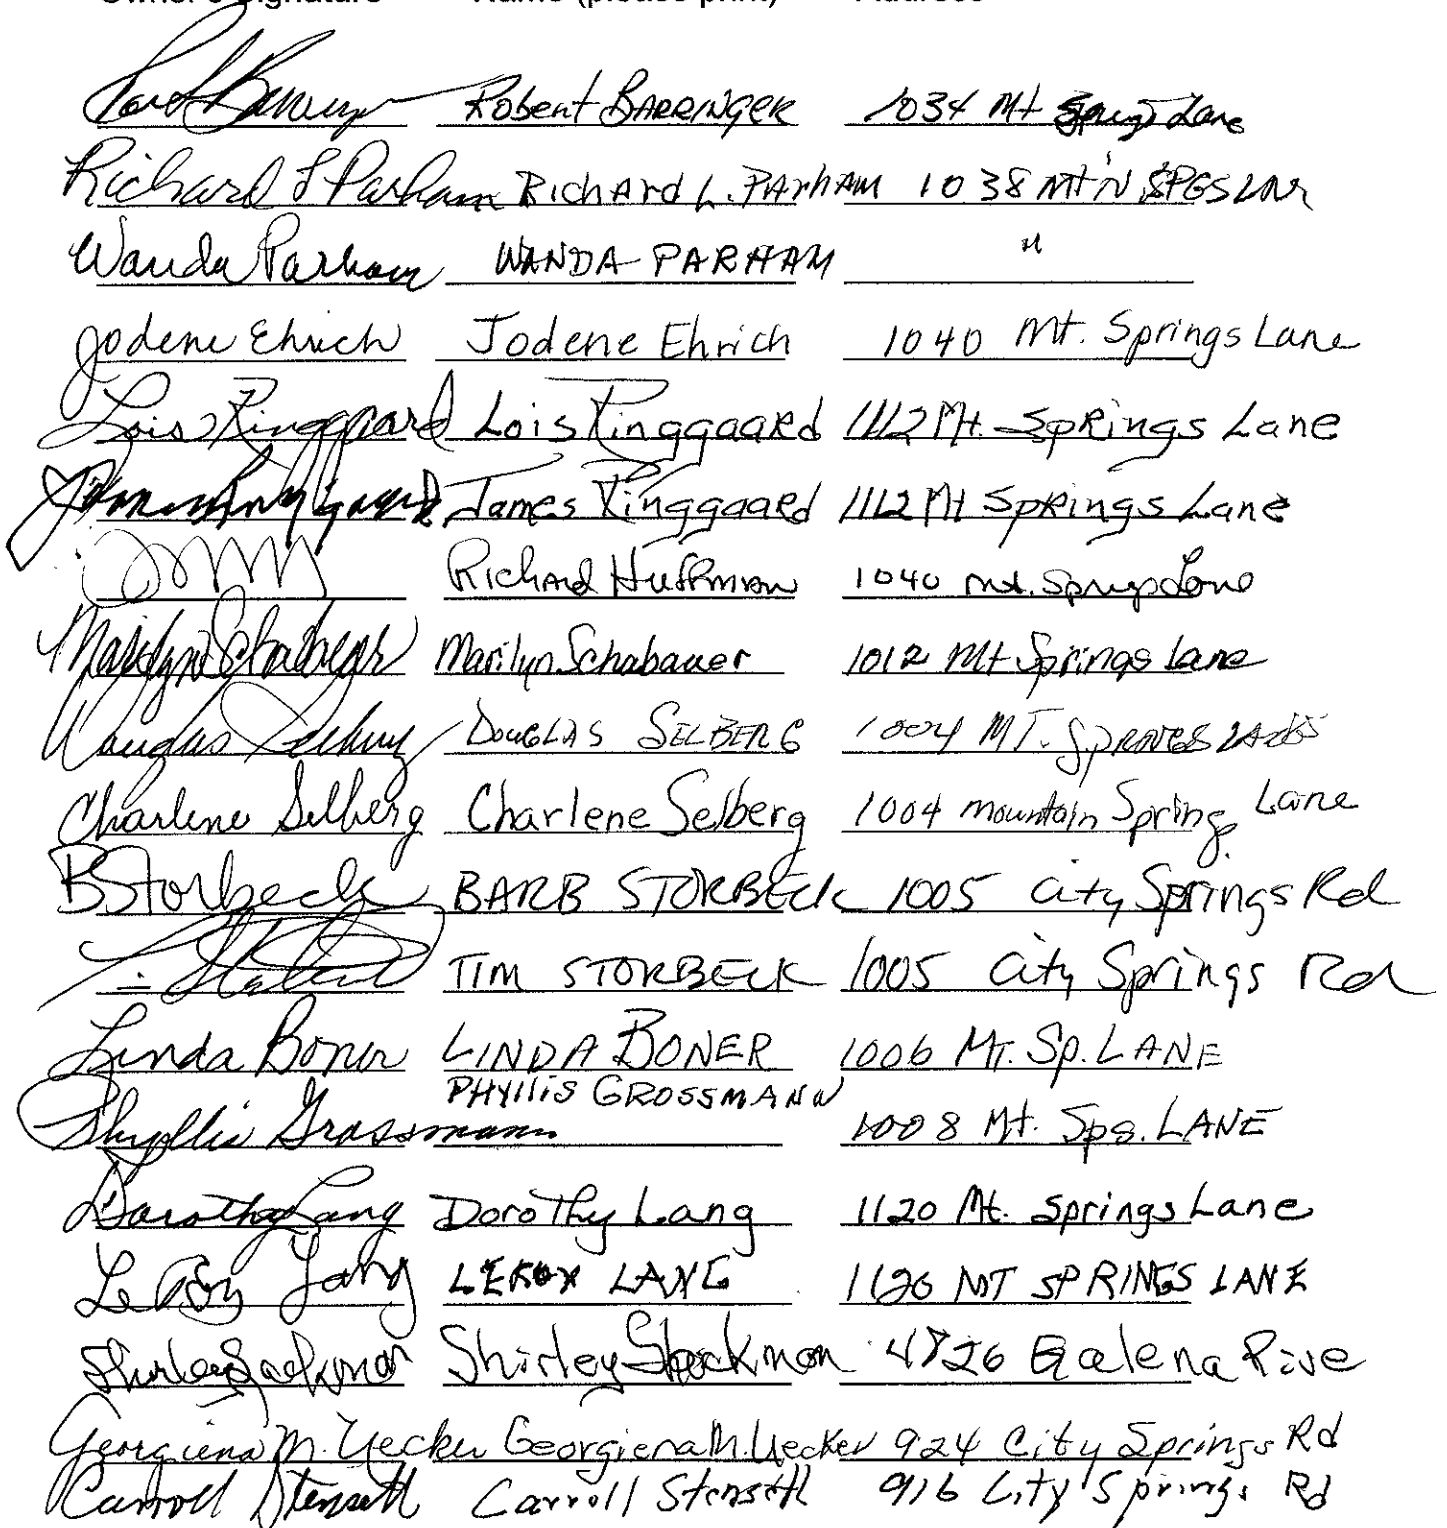 Owner's Signature Name (please print) Address
Robert BARRINGER 1034 Mt Springs Lane
Richard L Parham Richard L. PARhAM 1038 MT'N SPGS LNR
Wanda Parham WANDA PARHAM "
Jodene Ehrich Jodene Ehrich 1040 Mt. Springs Lane
Lois Ringgaard Lois Ringgaard 1112 Mt. Springs Lane
James Ringgaard James Ringgaard 1112 Mt Springs Lane
Richard Huffman 1040 Mt. Springs Lane
Marilyn Schabauer Marilyn Schabauer 1012 Mt Springs Lane
Douglas Selberg DOUGLAS SELBERG 1004 MT. Springs
Charlene Selberg Charlene Selberg 1004 mountain Spring Lane
B Storbeck BARB STORBECK 1005 City Springs Rd
TIM STORBECK 1005 City Springs Rd
Linda Boner LINDA BONER 1006 MT. Sp. LANE
PHYLLIS GROSSMANN
Phyllis Grossmann 1008 Mt. Spg. LANE
Dorothy Lang Dorothy Lang 1120 Mt. Springs Lane
LeRoy Lang LEROY LANG 1120 MT SPRINGS LANE
Shirley Shirley 4726 Galena
Georgiena M. Uecker Georgiena M. Uecker 924 City Springs Rd
Carroll Stenseth Carroll Stenseth 916 City Springs Rd